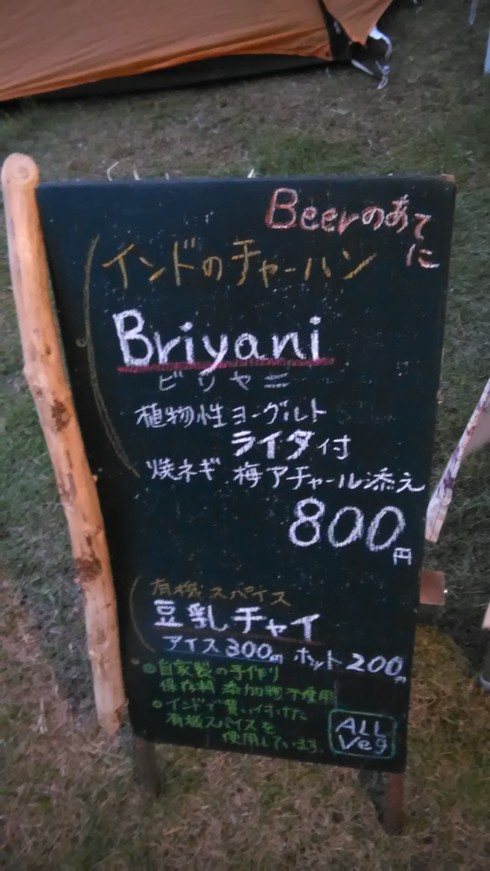 Beerのあて
に
インドのチャーハン
Briyani
ビリヤニ
植物性ヨーグルト
ライタ付
焼ネギ 梅アチャール添え
800円
有機スパイス
豆乳チャイ
アイス300円 ホット200円
◎自家製の手作り
保存料 添加物不使用
◎インドで買い付けた
有機スパイスを
使用しています。
ALL
Veg